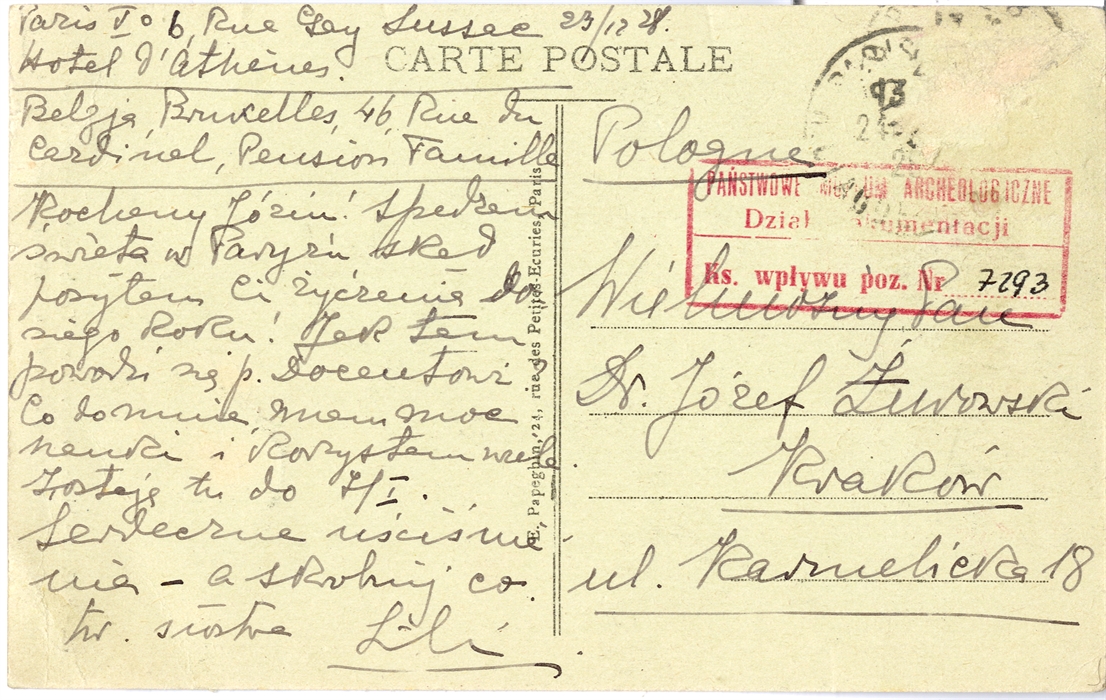 Paris V° 6, Rue Gey Lussec 23/12 28.
Hotel d'Athènes.
CARTE POSTALE
Belgja, Bruxelles, 46, Rue du
Cardinal, Pension Famille
Kochany Józiu! Spędzam
święta w Paryżu skąd
posyłam Ci życzenia Do
siego Roku. Jak tam
powodzi się p. Docentowi?
Co do mnie, mam moc
nauki i korzystam wiele.
Zostaję tu do 7/I.
Serdeczne uściśnie
nia – a skrobnij co.
tw. siostra
Lili
E. Papeghin, 24, rue des Petites-Ecuries, Paris
Pologne
PAŃSTWOWE MUZEUM ARCHEOLOGICZNE
Dział Dokumentacji
Ks. wpływu poz. Nr 7293
Wielmożny Pan
Dr. Józef Żurowski
Kraków
ul. Karmelicka 18